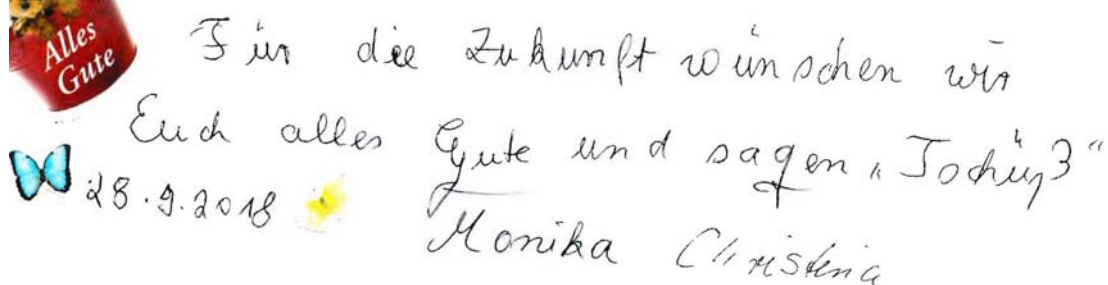 Alles
Gute
Für die Zukunft wünschen wir
Euch alles Gute und sagen „Tschüß“
28.9.2018
Monika Christina